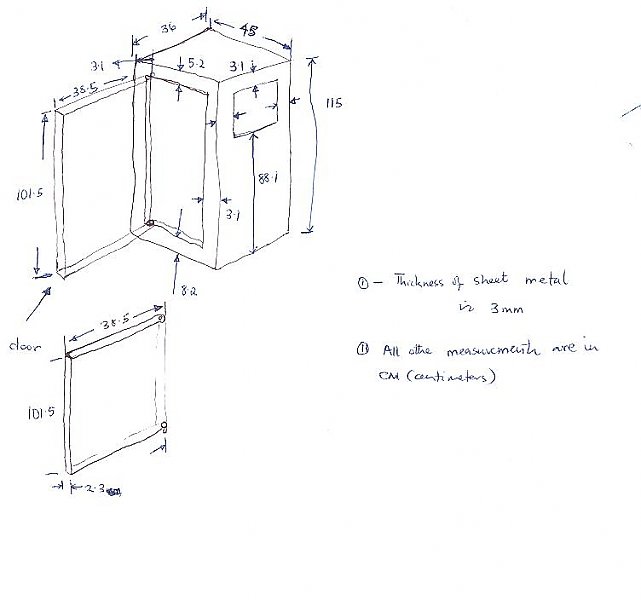 36
45
3.1
5.2
3.1
38.5
115
101.5
88.1
3.1
8.2
door
38.5
101.5
2.3
① - Thickness of sheet metal
is 3mm
② All othe measurments are in
CM (centimeters)